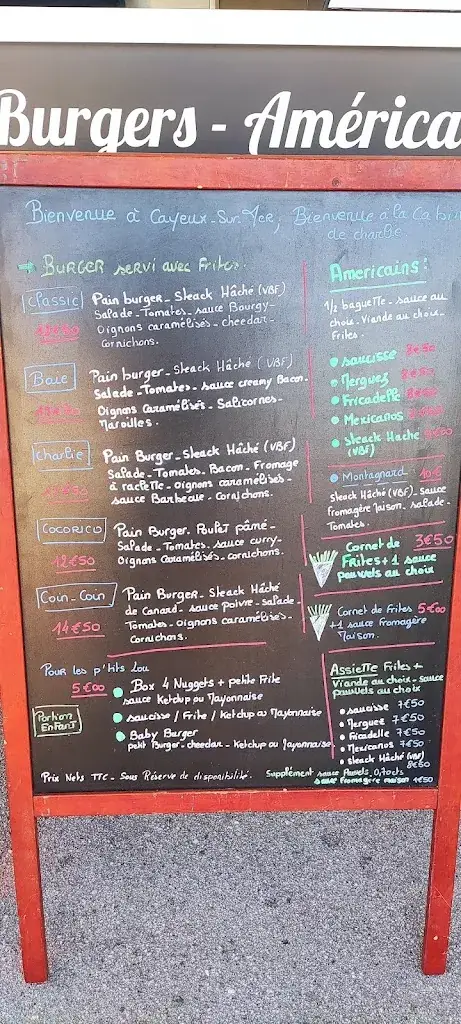 Burgers - América
Bienvenue à Cayeux-Sur-Mer, Bienvenue à la Cabin
de charlie
→ BURGER servi avec Frites.
Classic
Pain burger_ Steack Hâché (VBF)
Salade_ Tomates_ sauce Bourgy_
Oignons caramélisés_ cheedar_
Cornichons.
Baie
Pain burger_ Steack Hâché (VBF)
Salade_Tomates_ sauce creamy Bacon_
Oignons Caramélisés_ Salicornes_
Maroilles.
Charlie
Pain Burger_ Steack Hâché (VBF)
Salade_ Tomates_ Bacon_ Fromage
à raclette_ oignons caramélisés_
sauce Barbecue_ Cornichons.
COCORICO
12€50
Pain Burger. Poulet pâné_
Salade_ Tomates_ sauce curry_
Oignons Caramélisés_ cornichons.
Coin-Coin
14€50
Pain Burger_ Steack Hâché
de Canard_ sauce poivre_ salade_
Tomates_ oignons caramélisés_
Cornichons.
Pour les p'tits Lou
5€00
Portion
Enfant
Box 4 Nuggets + petite Frite
sauce Ketchup ou Mayonnaise
saucisse / Frite / Ketchup ou Mayonnaise
Baby Burger
petit Burger_ cheedar_ Ketchup ou Mayonnaise
Américains:
1/2 baguette_ sauce au
choix_ Viande au choix_
Frites_
saucisse 8€50
Merguez 8€50
Fricadelle
Mexicanos
Steack Haché
(VBF)
Montagnard 10€
Steack Hâché (VBF)_ sauce
fromagère maison_ salade_
Tomates.
Cornet de 3€50
Frites + 1 sauce
pauwels au choix
Cornet de Frites 5€00
+1 sauce fromagère
Maison.
Assiette Frites +
Viande au choix_ sauce
pauwels au choix
saucisse 7€50
Merguez 7€50
Fricadelle 7€50
Mexicanos 7€50
Steack Hâché (VBF)
8€50
Prix Nets TTC_ Sous Réserve de disponibilité.
Supplément sauce Pauwels 0,70cts
sauce fromagère maison 1€50